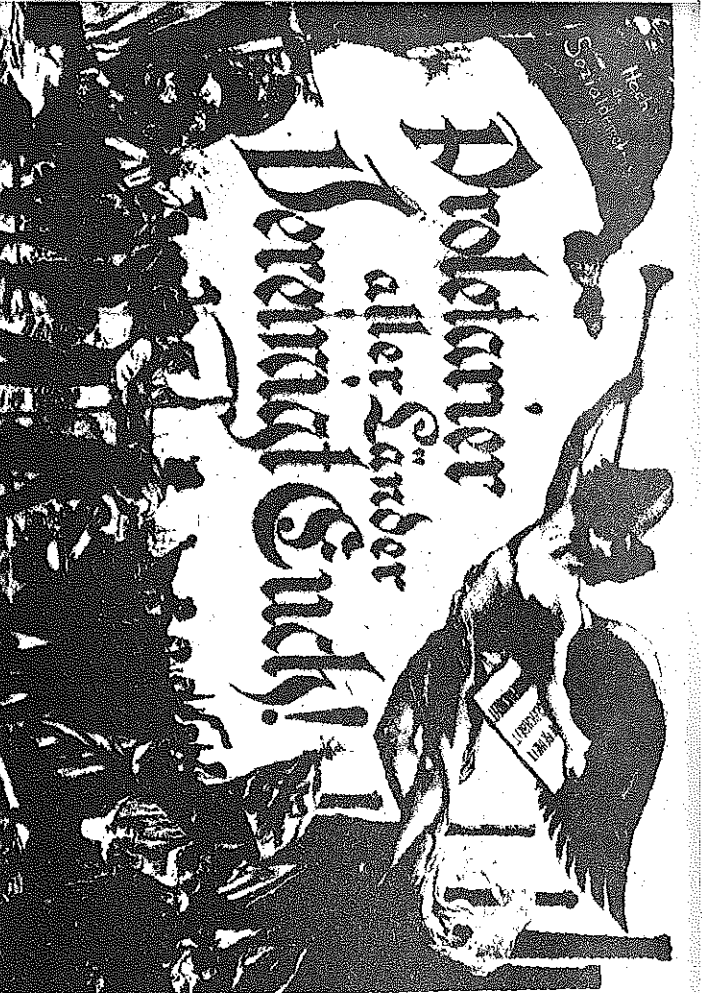 Hoch
Sozialdemok
Proletarier
aller Länder
Vereinigt Euch!